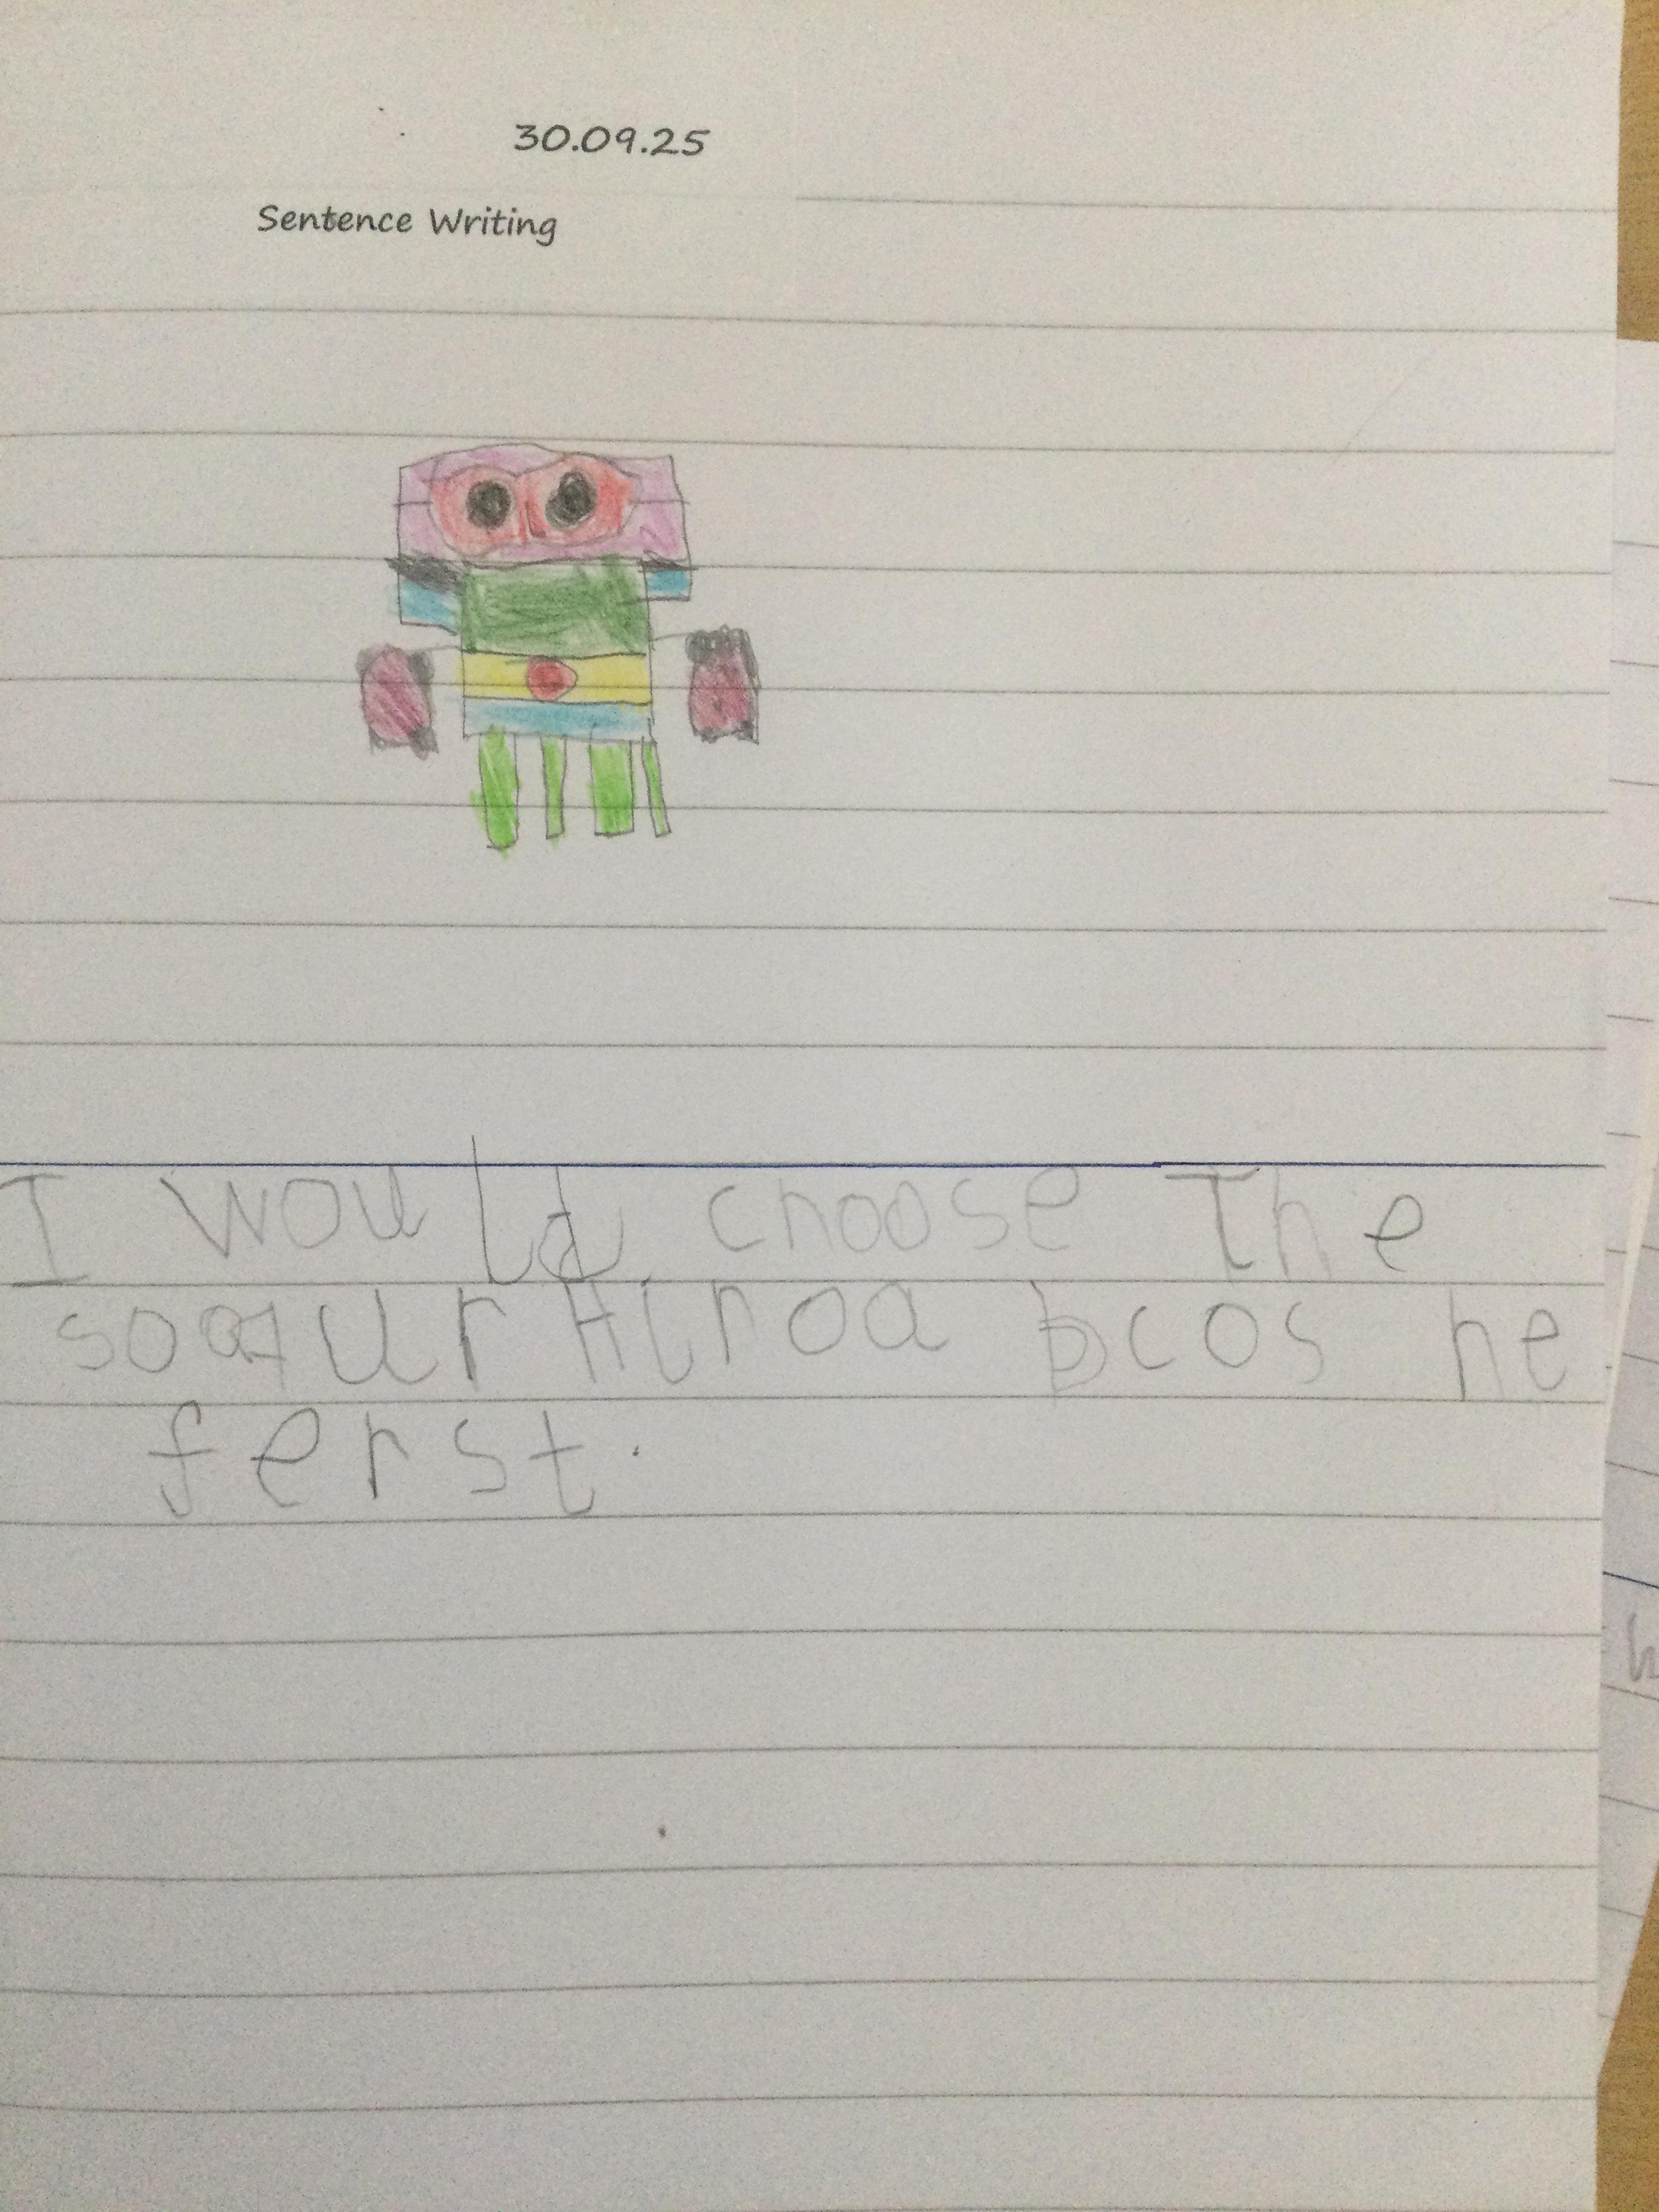 30.09.25
Sentence Writing
I would choose The
soaqur Hiroa bcos he
ferst.